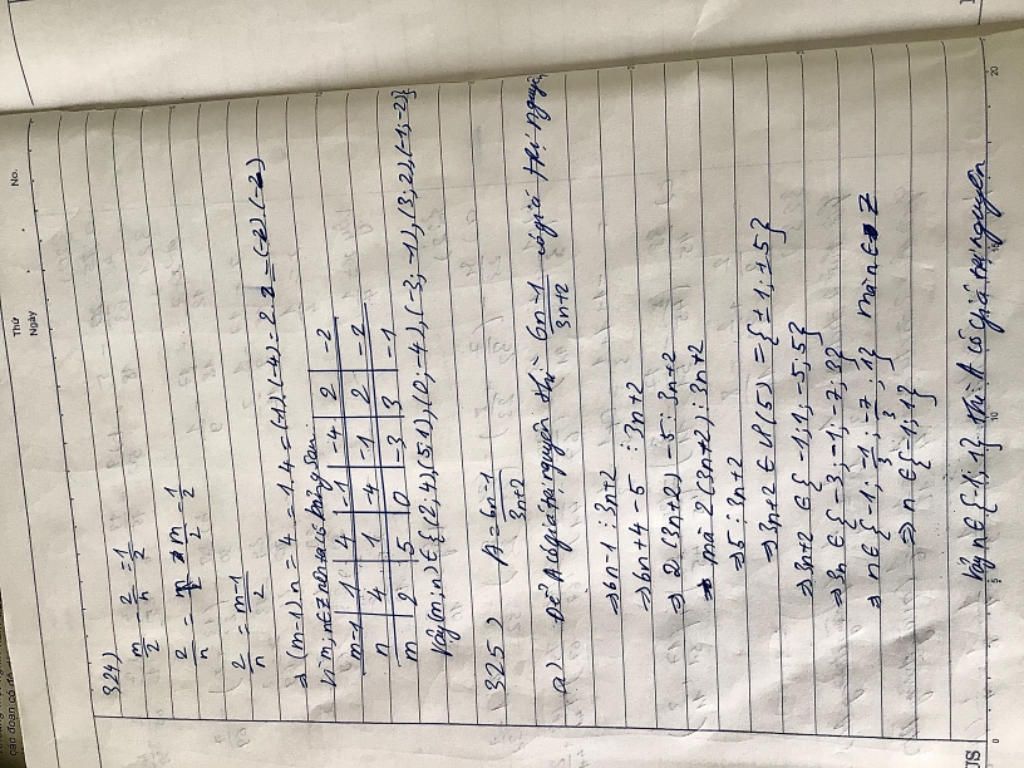 Thứ
Ngày
No.
324)
m/2 - 2/n = 1/2
2/n = m/2 - 1/2
2/n = m-1/2
⇒ (m-1) n = 4 = 1.4 = (-1).(-4) = 2.2 = (-2)(-2)
Vì m, n∈Z nên ta có bảng sau:
m-1 | 1 | 4 | -1 | -4 | 2 | -2
n | 4 | 1 | -4 | -1 | 2 | -2
m | 2 | 5 | 0 | -3 | 3 | -1
Vậy (m; n) ∈ {(2; 4), (5; 1), (0; -4), (-3; -1), (3; 2), (-1; -2)}
325) A = 6n-1/3n+2
a) Để A có giá trị nguyên thì 6n-1/3n+2 có giá trị nguyên
⇒ 6n-1 ⋮ 3n+2
⇒ 6n+4-5 ⋮ 3n+2
⇒ 2(3n+2) -5 ⋮ 3n+2
mà 2(3n+2) ⋮ 3n+2
⇒ 5 ⋮ 3n+2
⇒ 3n+2 ∈ Ư(5) = {±1; ±5}
⇒ 3n+2 ∈ {-1; 1; -5; 5}
⇒ 3n ∈ {-3; -1; -7; 3}
⇒ n ∈ {-1; -1/3; -7/3; 1} mà n ∈ Z
⇒ n ∈ {-1; 1}
Vậy n ∈ {-1; 1} thì A có giá trị nguyên
0 5 10 20